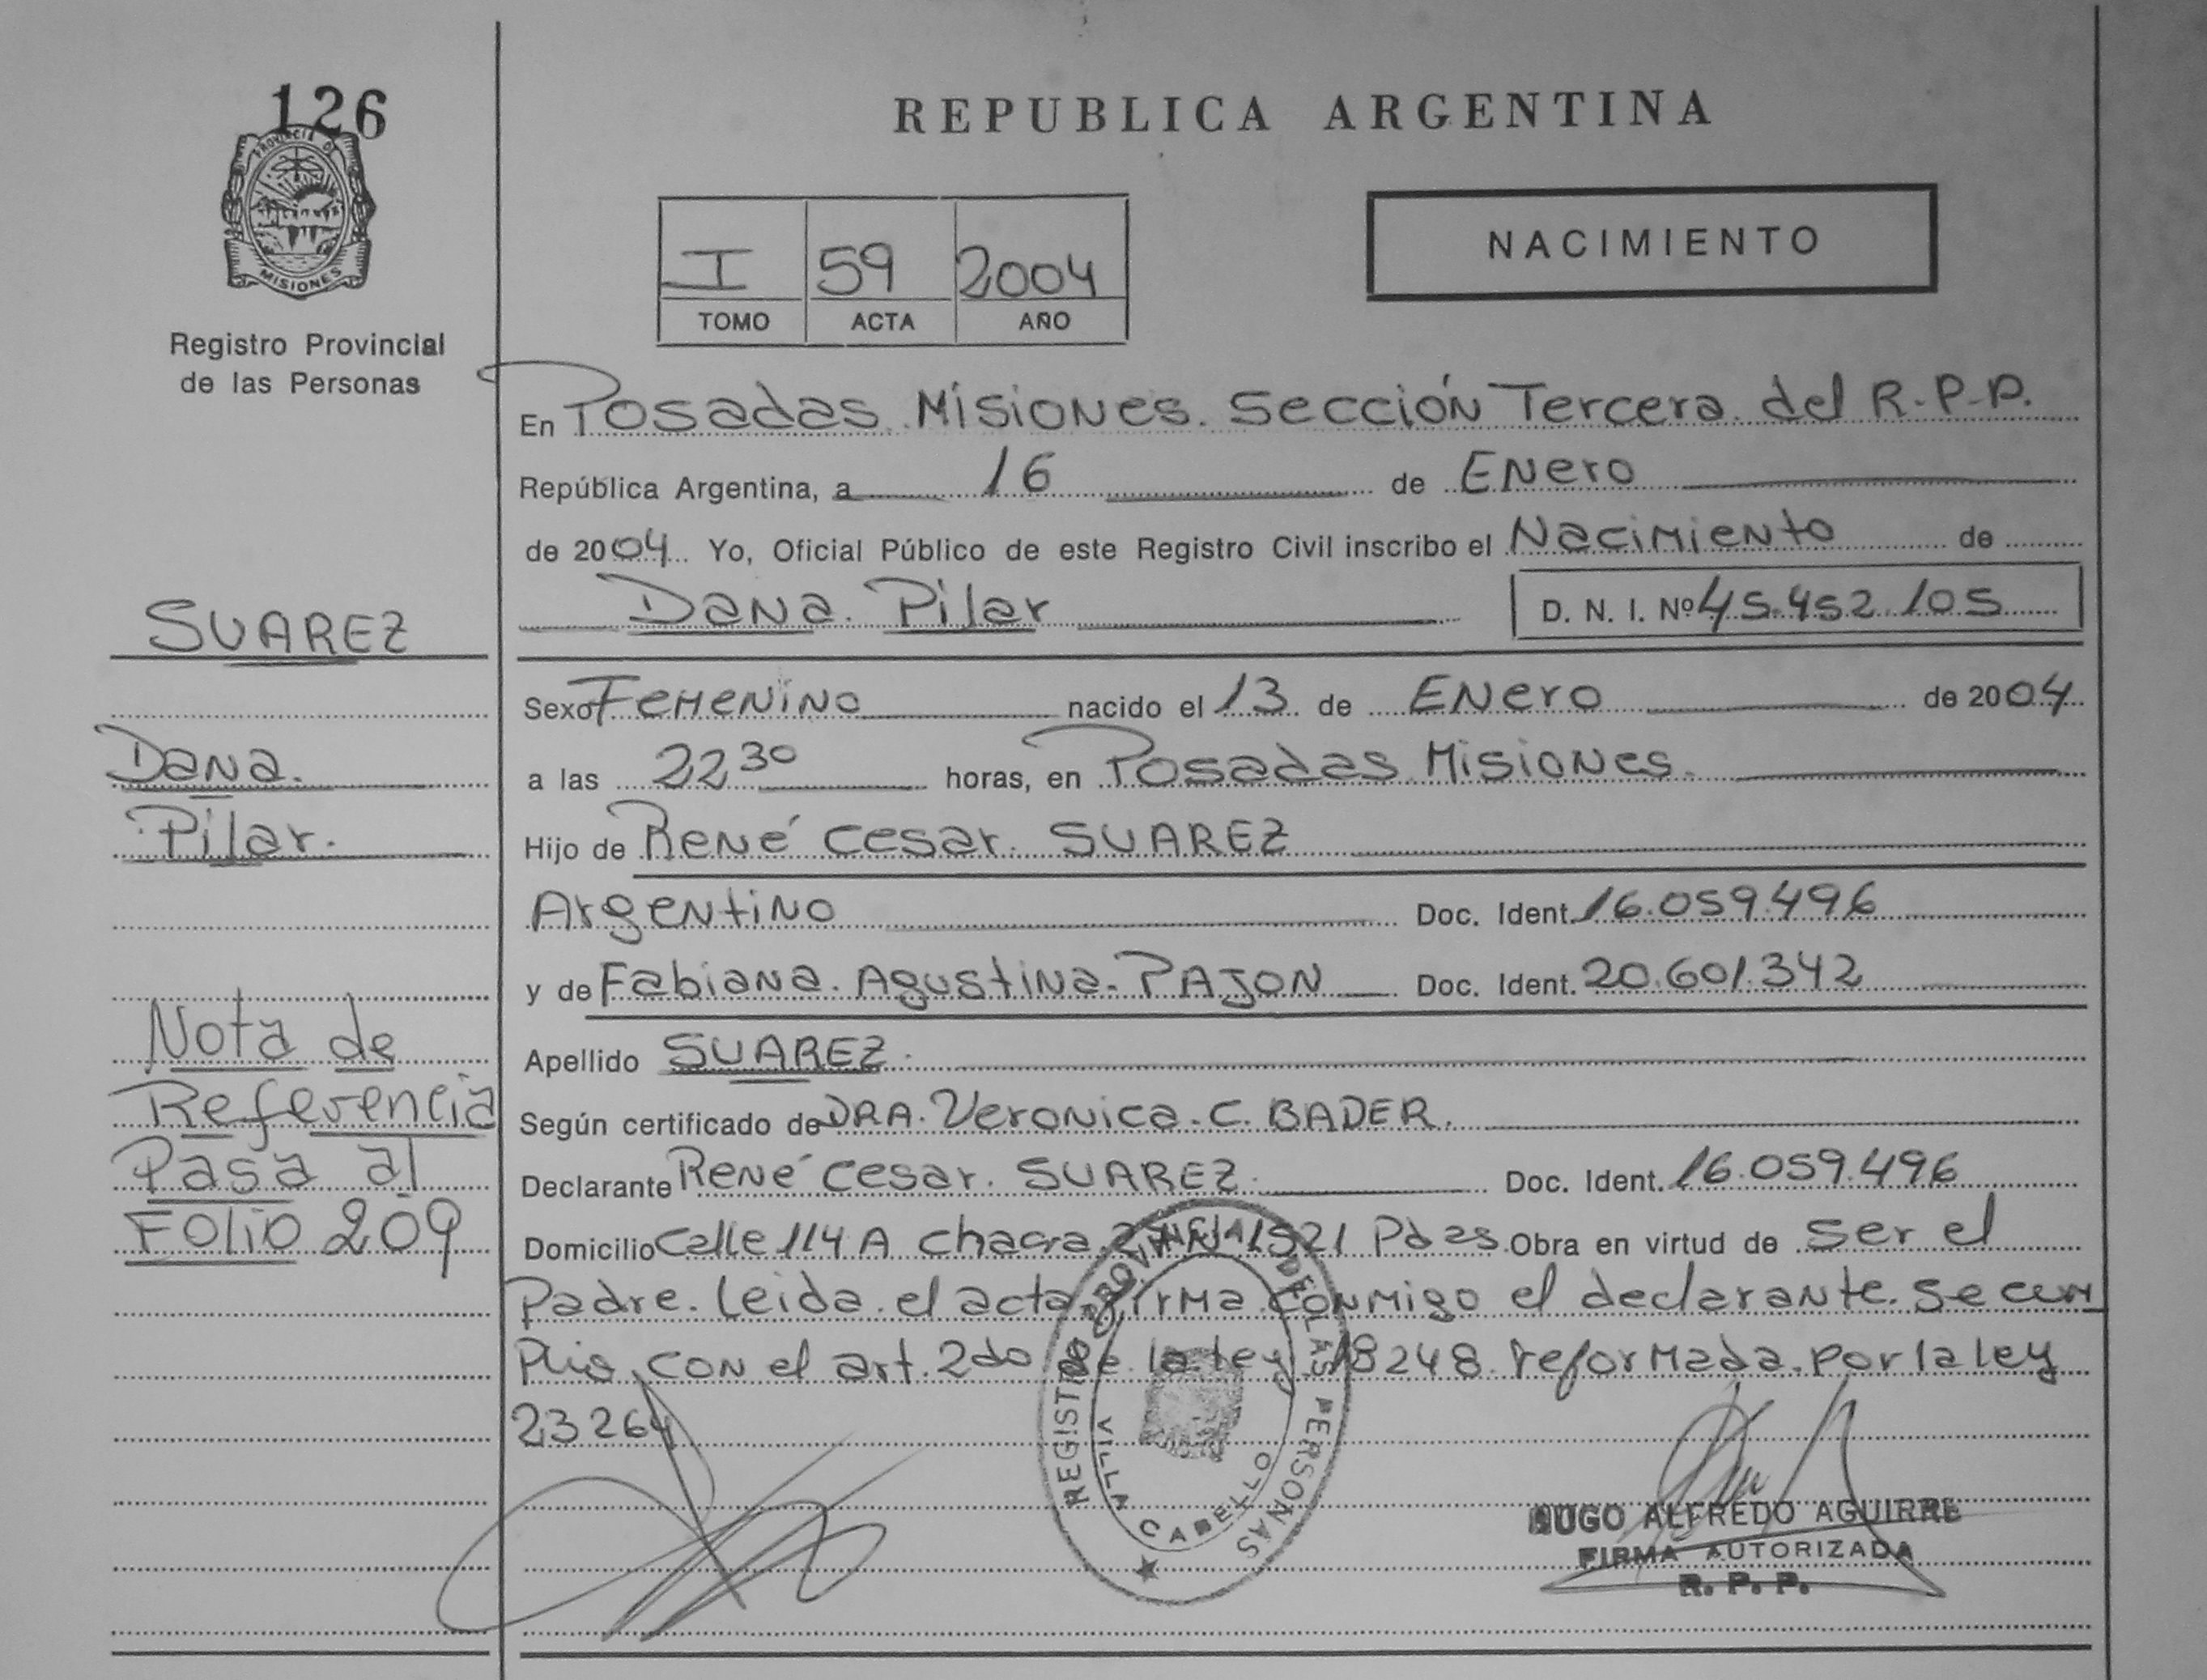 126
PROVINCIA D
MISIONES
Registro Provincial
de las Personas
SUAREZ
Dana.
Pilar.
Nota de
Referencia
Pasa al
Folio 209
REPUBLICA ARGENTINA
I 59 2004
TOMO ACTA AÑO
NACIMIENTO
En Posadas Misiones. Sección Tercera del R.P.P.
República Argentina, a 16 de Enero
de 2004 Yo, Oficial Público de este Registro Civil inscribo el Nacimiento de
Dana. Pilar D. N. I. Nº 45.452.105
Sexo Femenino nacido el 13 de Enero de 2004
a las 22 30 horas, en Posadas Misiones.
Hijo de René Cesar. SUAREZ
Argentino Doc. Ident. 16.059.496
y de Fabiana. Agustina. PAJON Doc. Ident. 20.601.342
Apellido SUAREZ.
Según certificado de DRA. Veronica. C. BADER.
Declarante René Cesar. SUAREZ. Doc. Ident. 16.059.496
Domicilio Calle 114 A Chacra 1521 Pdas Obra en virtud de ser el
Padre. Leida el acta firma conmigo el declarante. se cum
plio con el art. 2do de la ley 18248 reformada. por la ley
23264
REGISTRO PROVINCIAL DE LAS PERSONAS
VILLA CABELLO
HUGO ALFREDO AGUIRRE
FIRMA AUTORIZADA
R. P. P.